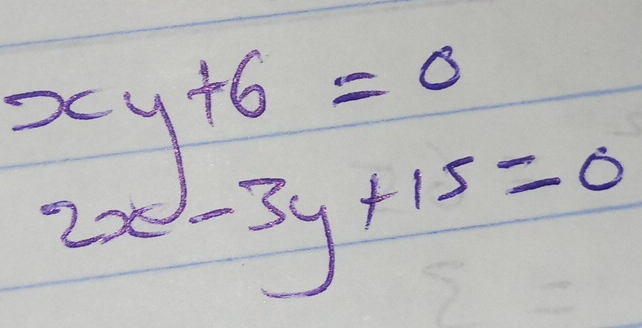 xy+6 = 0
2x-3y+15=0